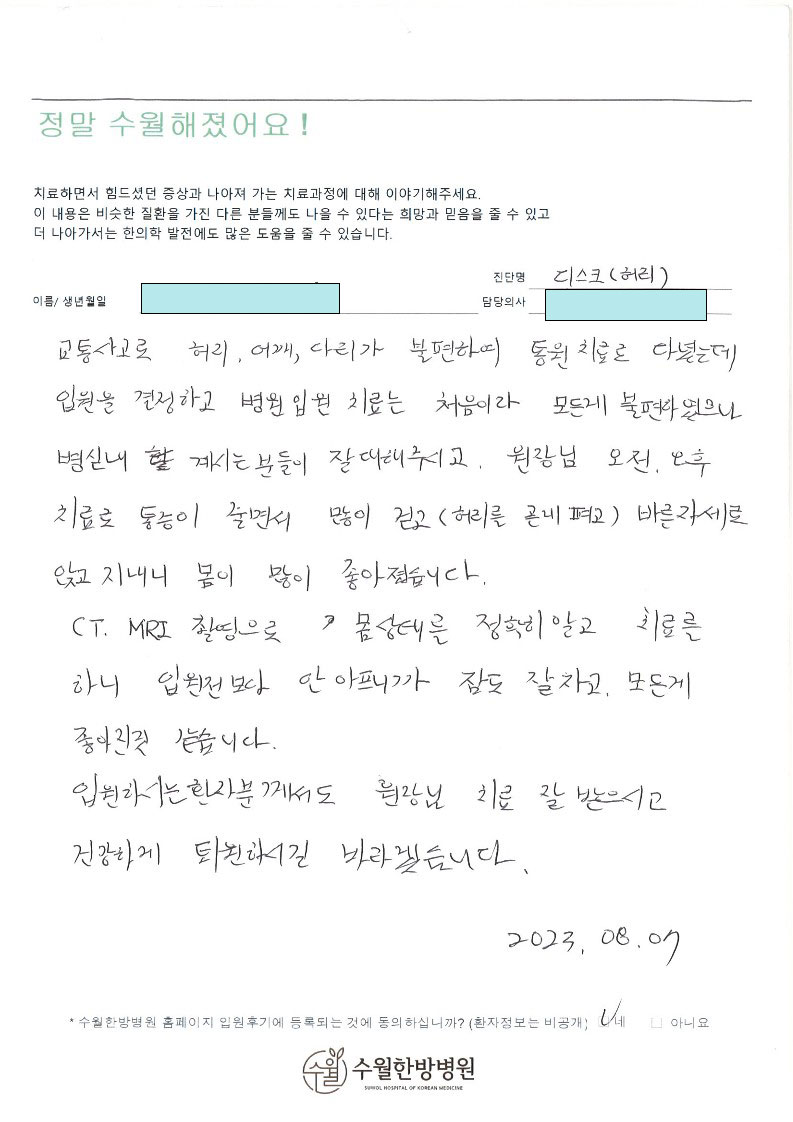 정말 수월해졌어요!
치료하면서 힘드셨던 증상과 나아져 가는 치료과정에 대해 이야기해주세요.
이 내용은 비슷한 질환을 가진 다른 분들께도 나을 수 있다는 희망과 믿음을 줄 수 있고
더 나아가서는 한의학 발전에도 많은 도움을 줄 수 있습니다.
진단명 디스크(허리)
이름/ 생년월일 담당의사
교통사고로 허리, 어깨, 다리가 불편하여 통원 치료로 다녔는데
입원을 결정하고 병원입원 치료는 처음이라 모든게 불편하였으나
병실내 계시는 분들이 잘 대해주시고, 원장님 오전, 오후
치료로 통증이 줄면서 많이 걷고(허리를 곧게 펴고) 바른자세로
앉고 지내니 몸이 많이 좋아졌습니다.
CT. MRI 촬영으로 몸상태를 정확히 알고 치료를
하니 입원전 보다 안 아프니까 잠도 잘 자고, 모든게
좋아진것 같습니다.
입원하시는환자분께서도 원장님 치료 잘 받으시고
건강하게 퇴원하시길 바라겠습니다.
2023. 08. 07
* 수월한방병원 홈페이지 입원후기에 등록되는 것에 동의하십니까? (환자정보는 비공개) 네 □ 아니요
수월 수월한방병원
SUWOL HOSPITAL OF KOREAN MEDICINE